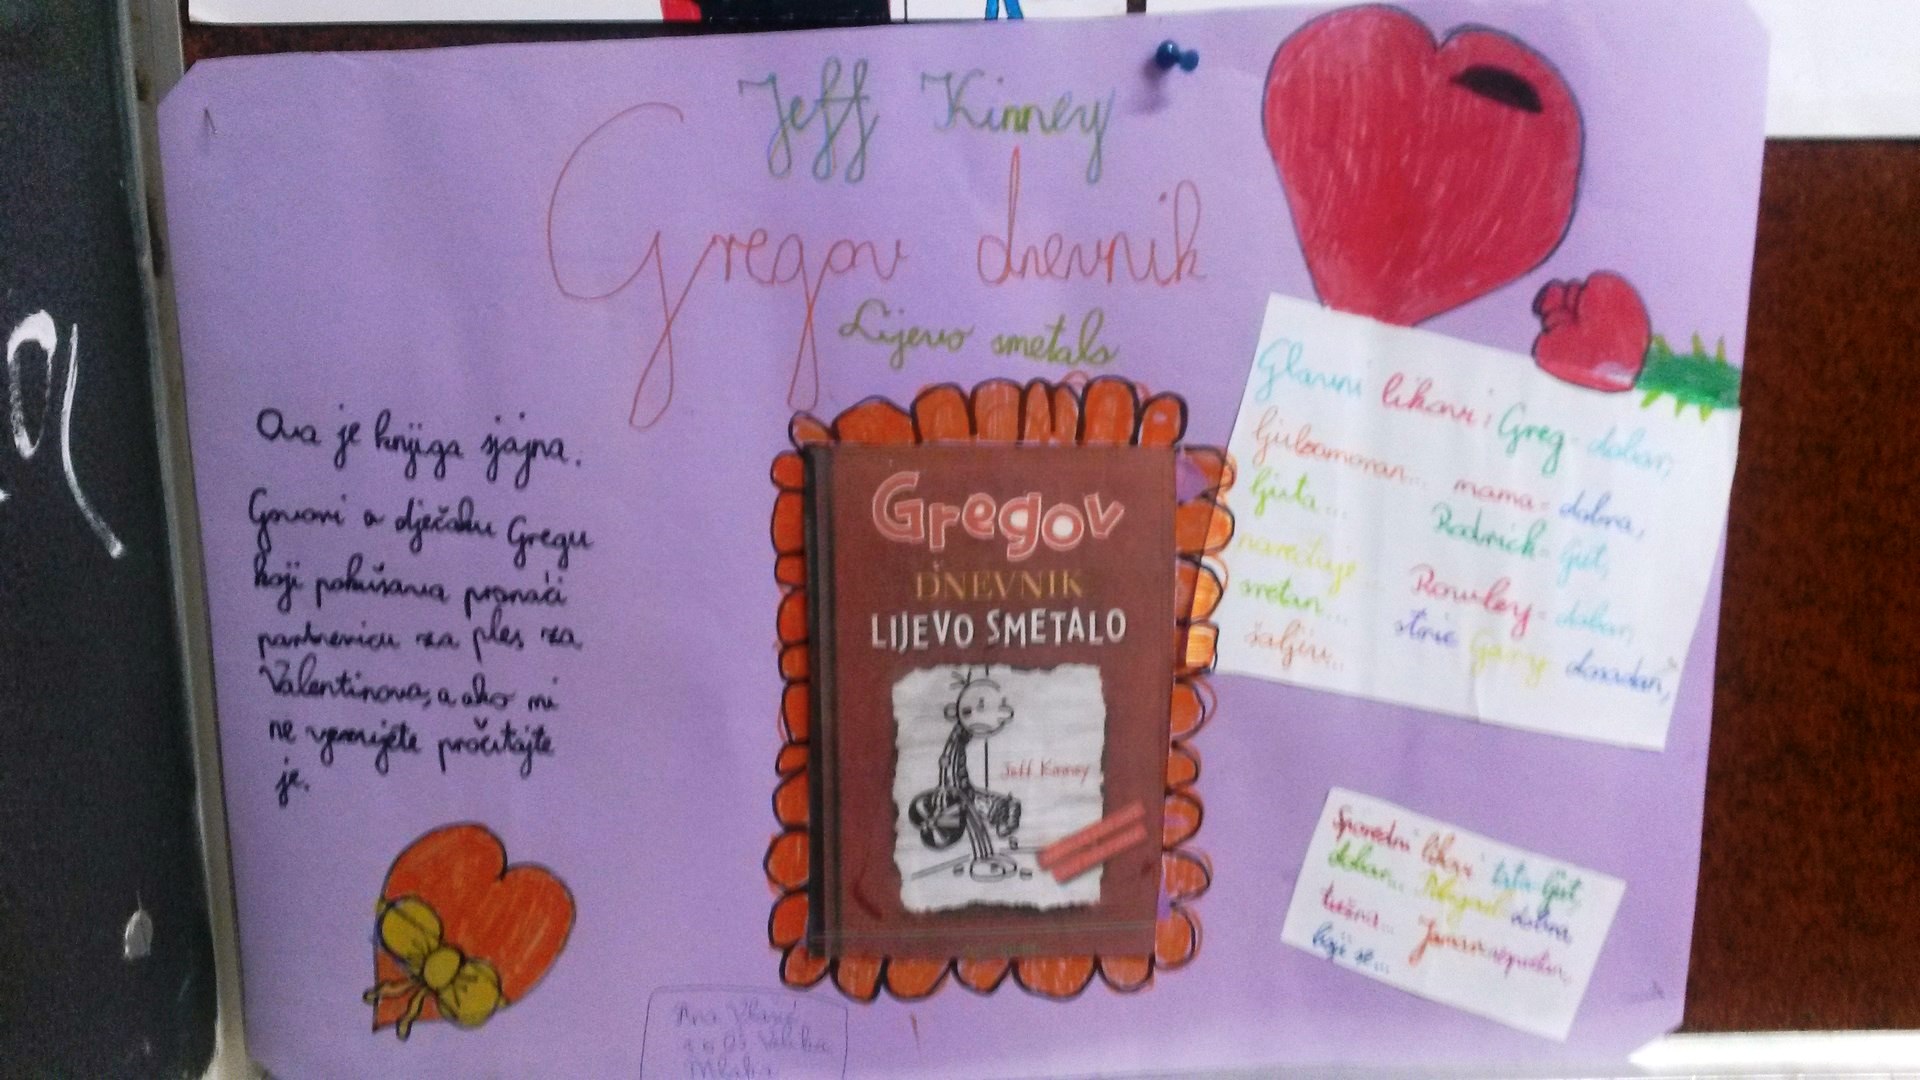 Jeff Kinney
Gregov dnevnik
Lijevo smetalo
Ova je knjiga sjajna.
Govori o dječaku Gregu
koji pokušava pronaći
partnericu za ples za
Valentinovo, a ako mi
ne vjerujete pročitajte
je.
Gregov
DNEVNIK
LIJEVO SMETALO
Jeff Kinney
Glavni likovi: Greg- dobar,
ljubomoran... mama- dobra,
ljuta... Rodrick- ljut,
naređuje... Rowley- dobar,
sretan... stric Gary dosadan,
šaljiv...
Sporedni likovi tata- ljut,
dobar... dobra,
boji se...
Ana